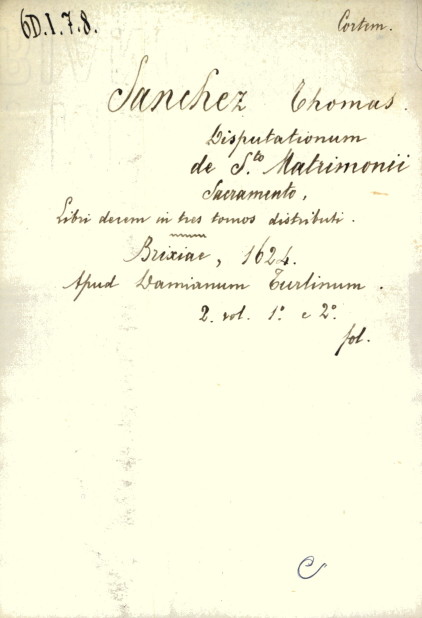 6D.I.7.8.
Cortem.
Sanchez Thomas.
Disputationum
de S.to Matrimonii
Sacramento,
Libri decem in tres tomos distributi.
Brixiae, 1624.
Apud Damianum Turlinum.
2. vol. 1º e 2º.
fol.
C